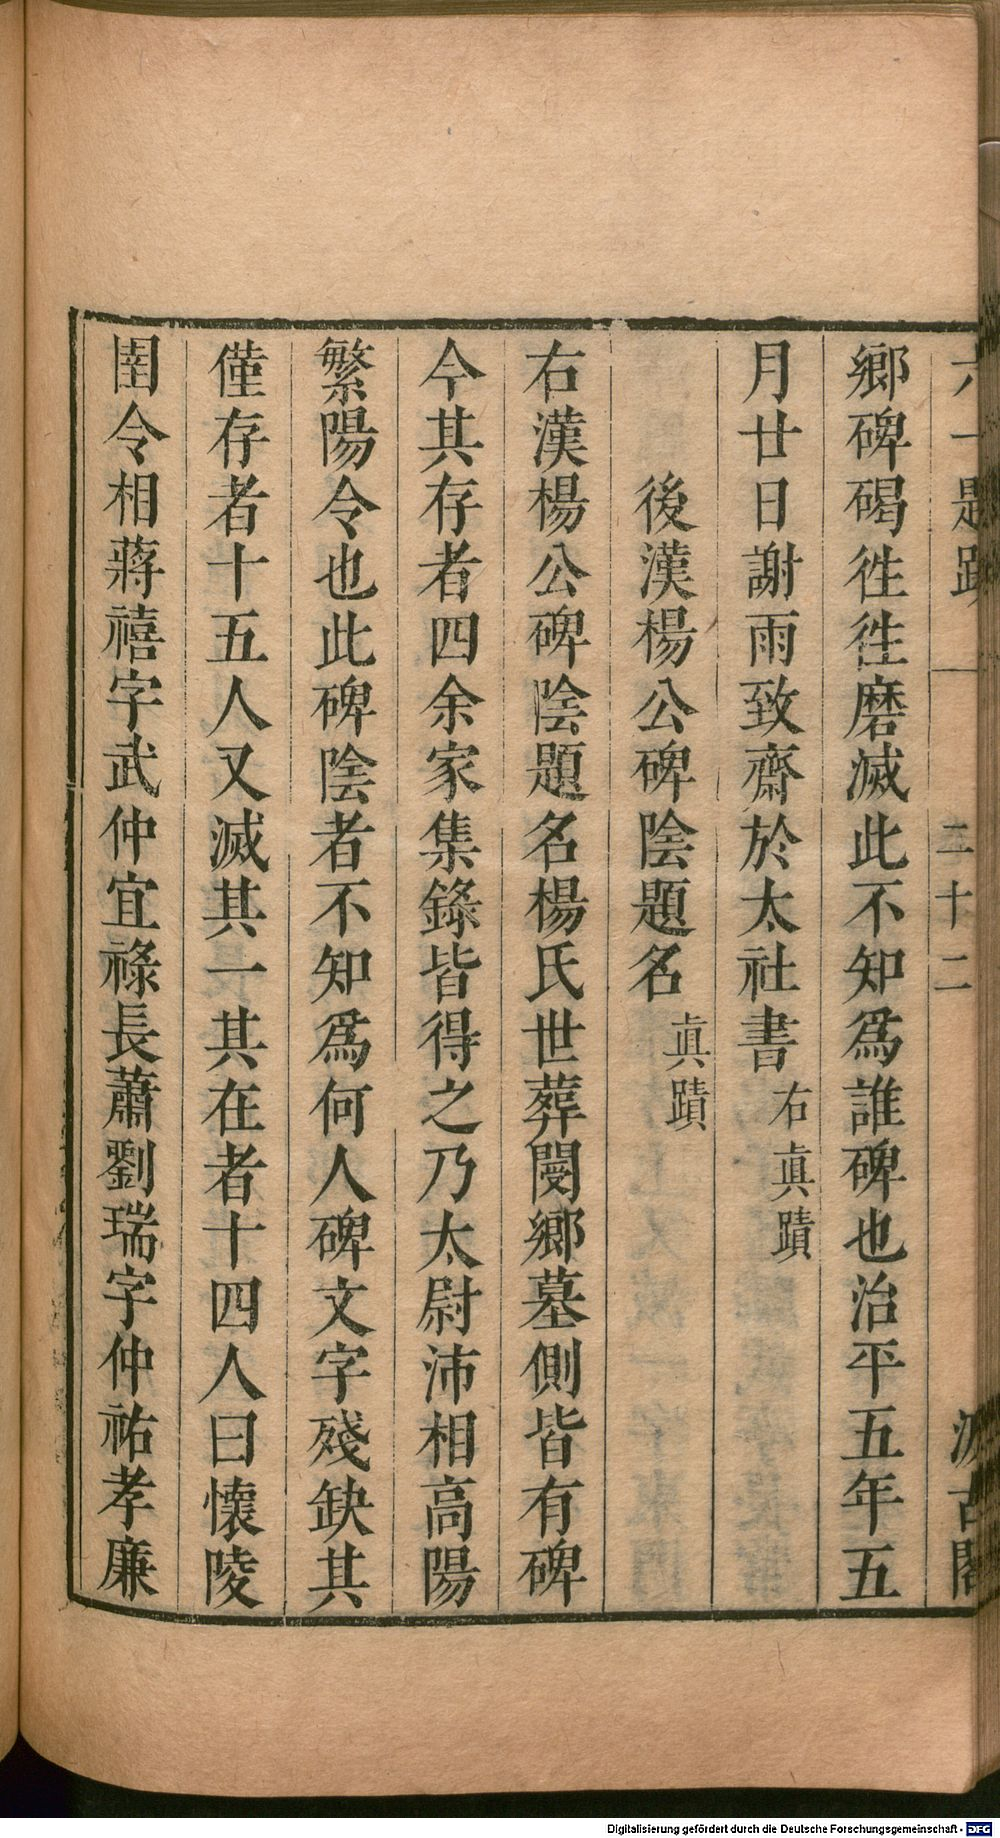 六一題跋 二十二 汲古閣
鄉碑碣徃徃磨滅此不知為誰碑也治平五年五
月廿日謝雨致齋於太社書 右眞蹟
後漢楊公碑陰題名 眞蹟
右漢楊公碑陰題名楊氏世葬閿鄉墓側皆有碑
今其存者四余家集錄皆得之乃太尉沛相高陽
繁陽令也此碑陰者不知爲何人碑文字殘缺其
僅存者十五人又滅其一其在者十四人曰懷陵
圉令相蔣禧字武仲宜祿長蕭劉瑞字仲祐孝廉
Digitalisierung gefördert durch die Deutsche Forschungsgemeinschaft - DFG